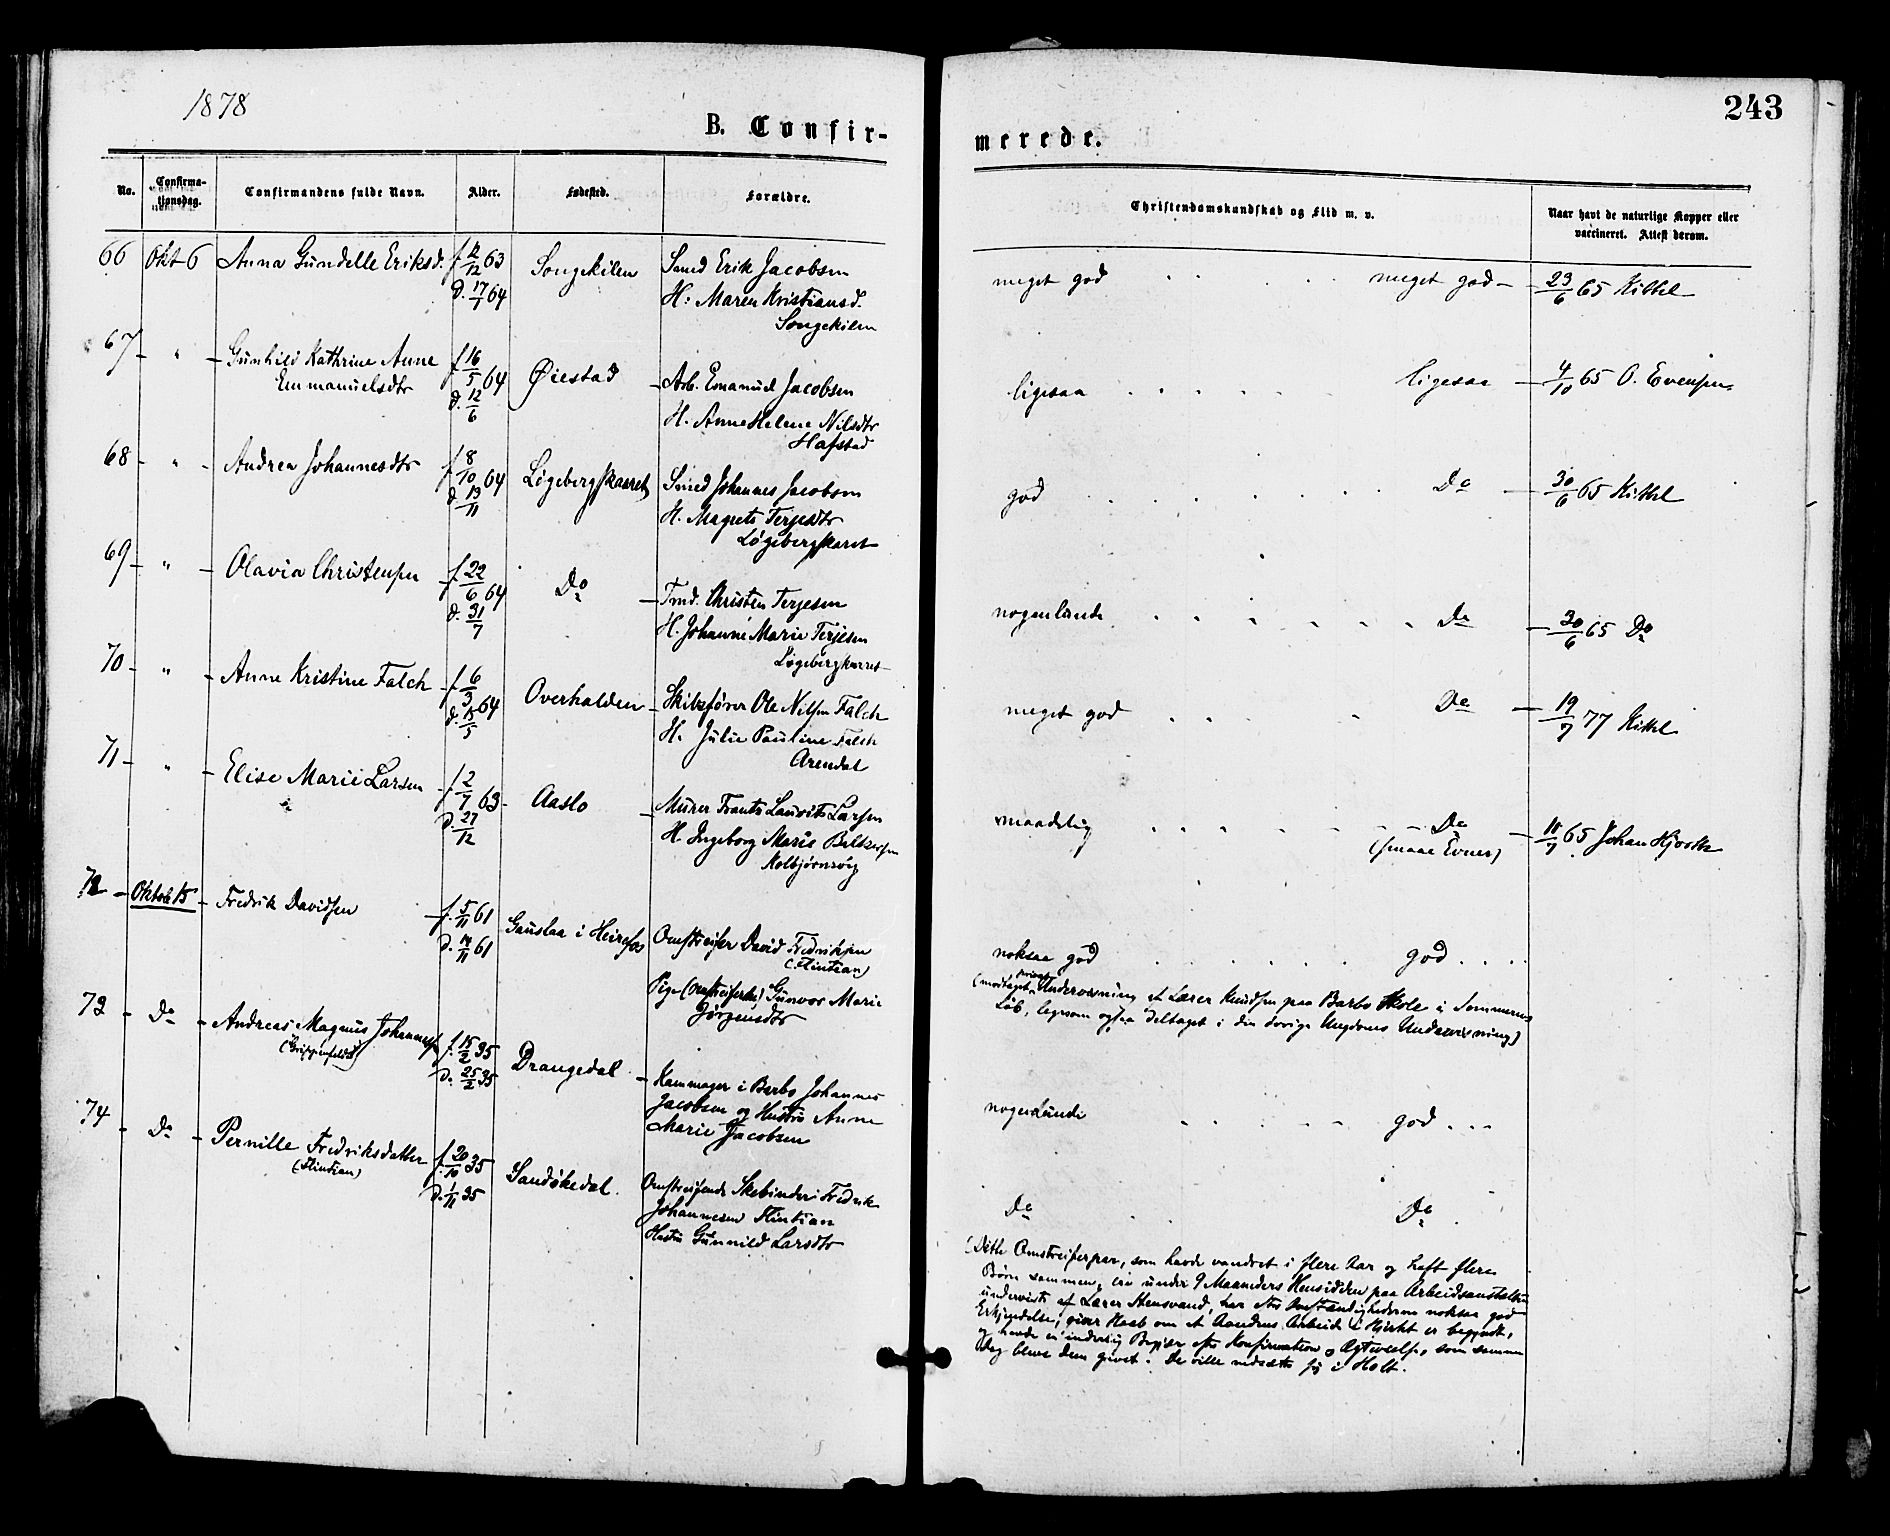 1878
243
B. Confir-
merede.
No.
Confirma-
tionsdag.
Confirmandens fulde Navn.
Alder.
Fødested.
Forældre.
Christendomskundskab og Flid m. v.
Naar havt de naturlige Kopper eller
vaccineret. Attest derom.
66 Okt 6 Anna Gundelle Eriksd. f. 12/12 63 Songekilen Smed Erik Jacobsen meget god meget god - 23/6 65 Kittel
d. 17/1 64 H: Maren Kristiansd.
Songekilen
67 - " - Gunhild Kathrine Anne f. 16/5 64 Øiestad - Arb. Emanuel Jacobsen ligesaa ligesaa - 4/10 65 O. Evensen
Emmanuelsdtr d. 12/6 H. Anne Helene Nilsdtr
Hafstad
68 - " - Andrea Johannesdtr f. 8/10 64 Løgebergskaaret Smed Johannes Jacobsen god Do - 30/6 65 Kittel
d. 13/11 H. Magrete Terjesdtr
Løgebergskaret
69 - " - Olavia Christensen f. 22/6 64 Do - Tmd. Christen Terjesen nogenlunde Do - 30/6 65 Do
d. 31/7 H. Johanne Marie Terjesen
Løgebergskaret
70 - " - Anne Kristine Falch - f. 6/3 64 Overhalden - Skibsfører Ole Nilsen Falch meget god Do - 19/7 77 Kittel
d. 15/5 H. Julie Pauline Falch
Arendal
71 - " - Elise Marie Larsen - f. 2/7 63 - Aaslo - Murer Frants Lauvits Larsen maadelig Do - 11/7 65 Johan Hjorth
d. 27/12 H. Ingeborg Marie Beltzersen (smaae Evner)
Kolbjørnsvig
72 - Oktob 15 - Fredrik Davidsen - f. 5/11 61 Gauslaa i Heirefos Omstreifer David Fredriksen noksaa god god
d. 14/11 61 (Flintian)
Pige (Omstreiferske) Gunvor Marie
Jørgensdtr
(modtaget privat Undervisning af Lærer Knudsen paa Barbo Skole i Sommerens
Løb, ligesom ogsaa deltaget i den øvrige Ungdoms Undervisning)
73 - Do - Andreas Magnus Johanness f. 15/2 35 Drangedal - Kammager i Barbo Johannes nogenlunde god
(Grippenfeldt) d. 25/2 35 Jacobsen og Hustru Anne
Marie Jacobsen
74 - Do - Pernille Fredriksdatter f. 20/10 35 Sandøkedal. Omstreifende Skebinder Fredrik Do Do
(Flintian) d. 1/11 35 Johannesen Flintian
Hustru Gunnild Larsdtr
(Dette Omstreiferpar, som havde vandret i flere Aar og haft flere
Børn sammen, ere under 9 Maaneders Hensidden paa Arbeidsanstalten
underviste af Lærer Stensvand, har efter Omstændighederne noksaa god
Erkjendelse, giver Haab om at Aandens Arbeide i Hjertet er begyndt,
og havde en inderlig Begjær efter Konfirmation og Ægtevielse, som samme
Dag bleve dem givet. De ville nedsætte sig i Holt.